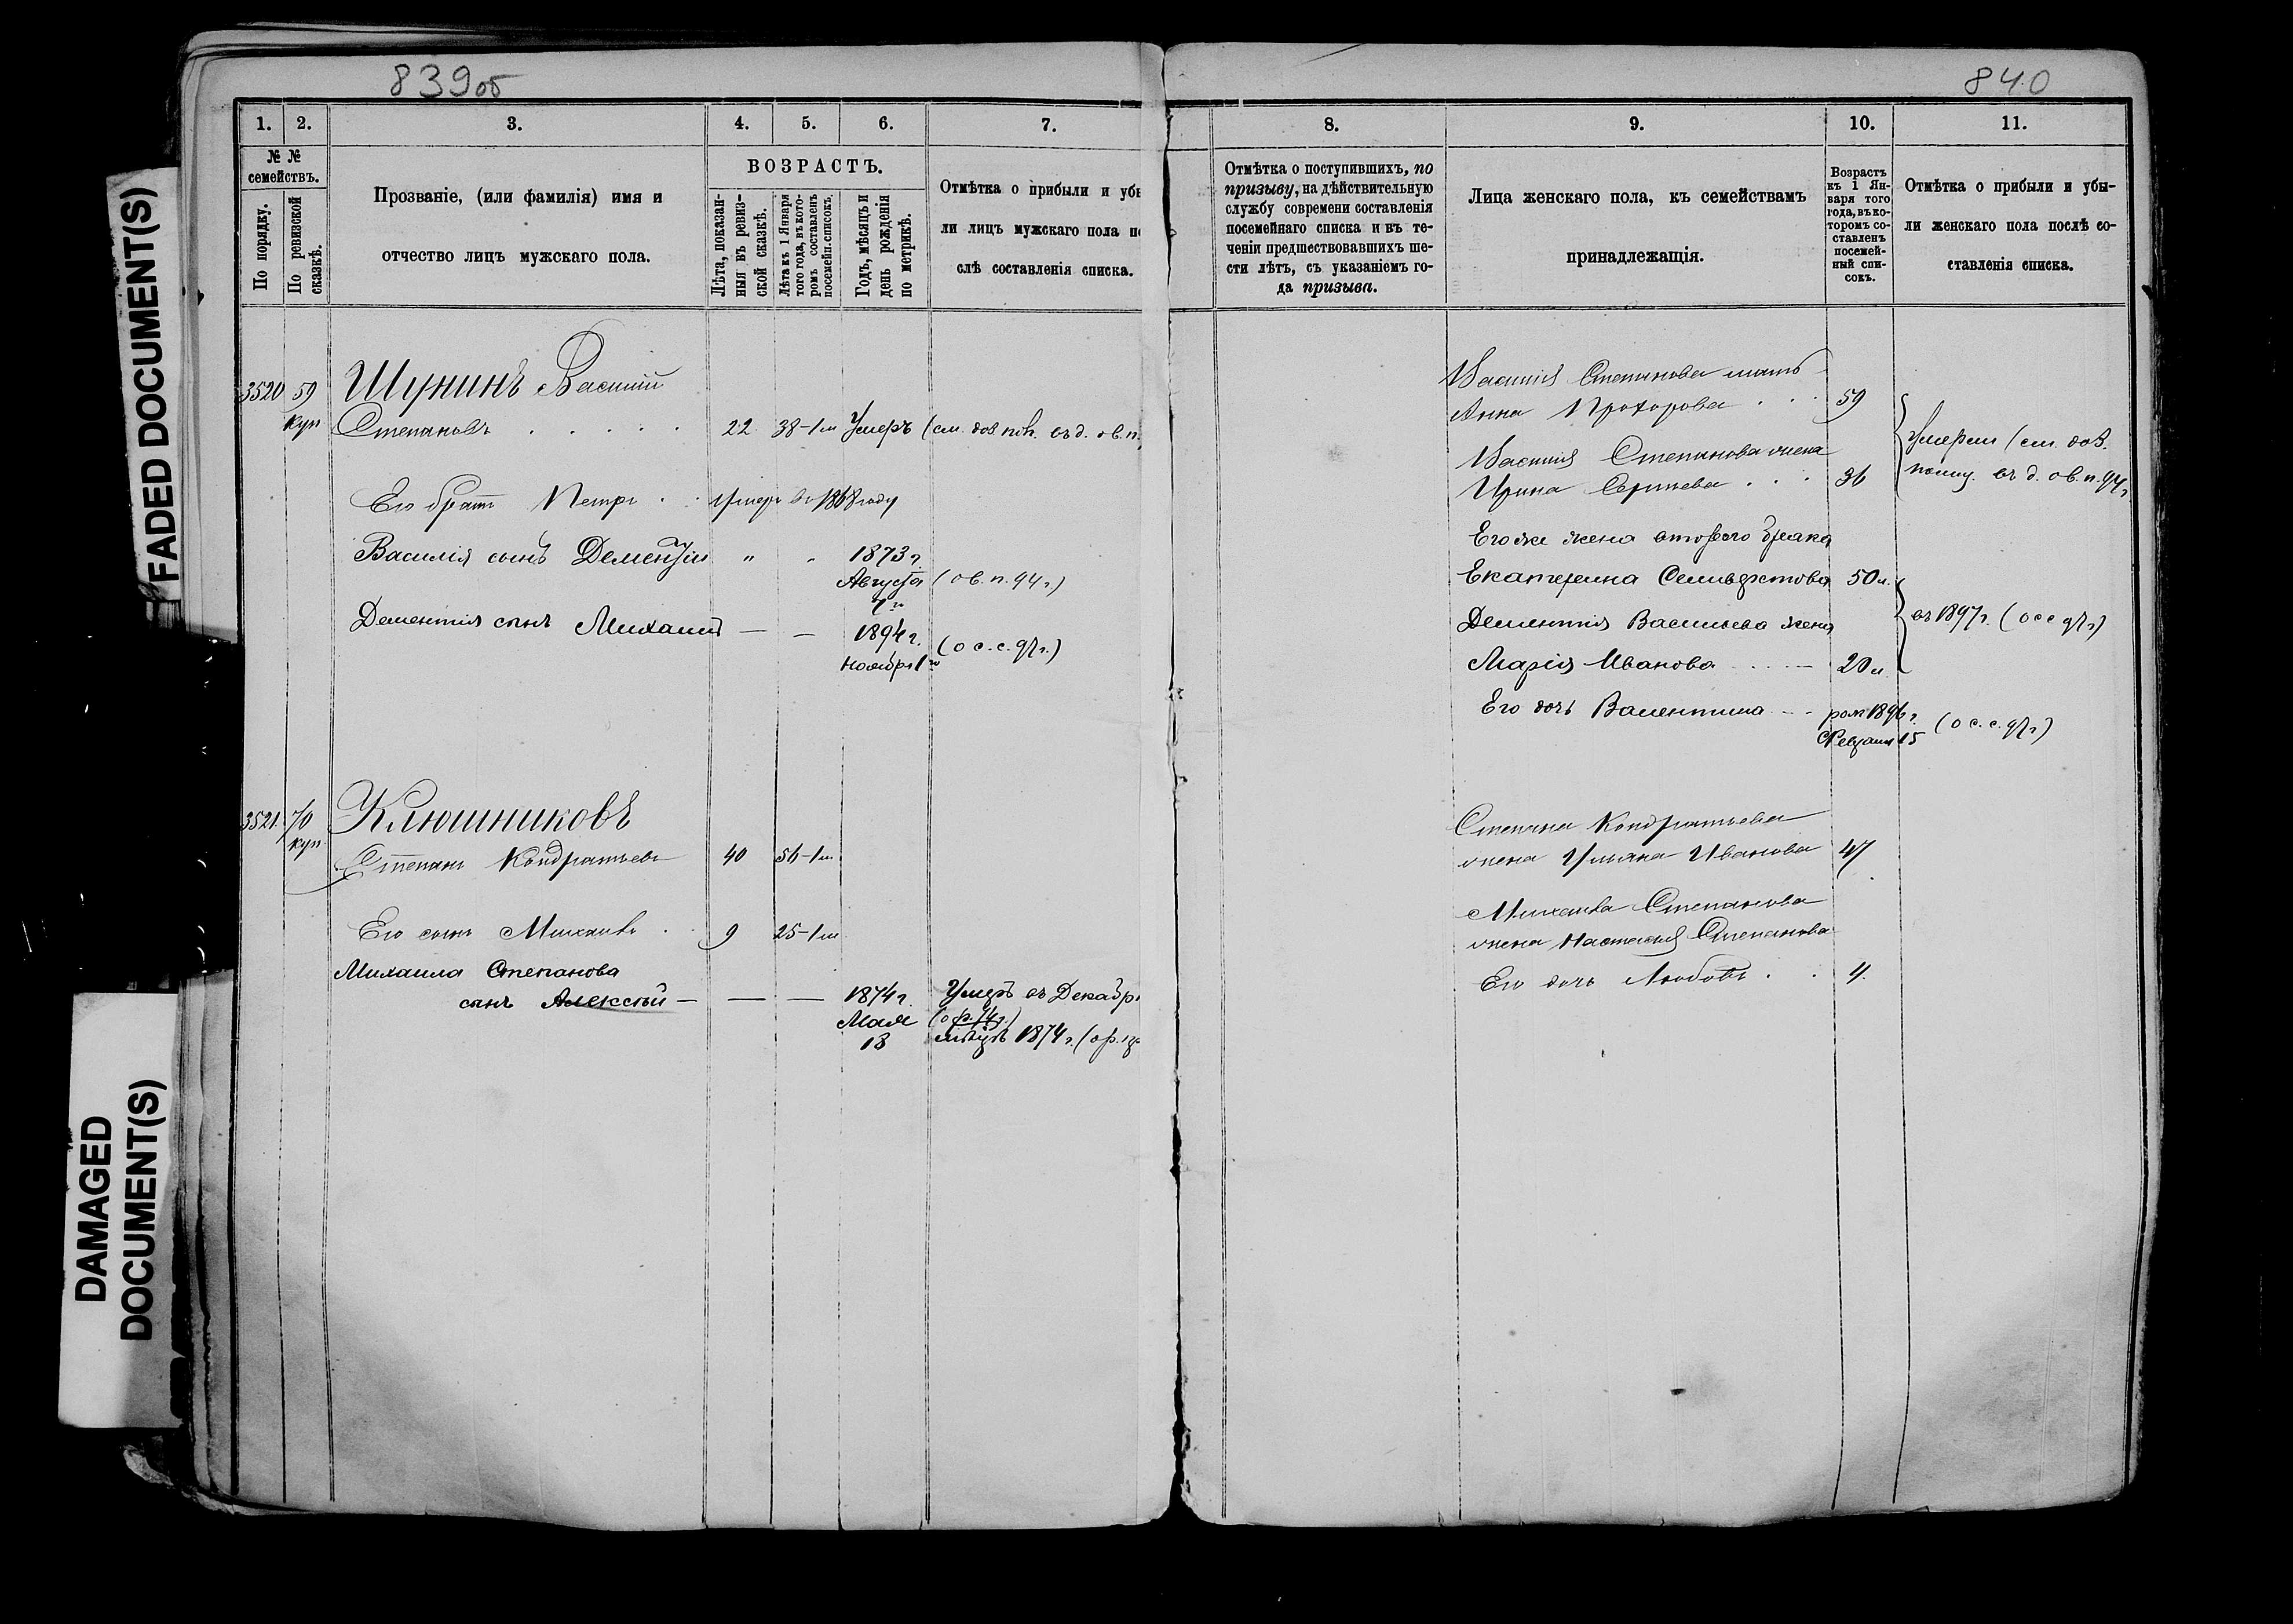 839об
840
FADED DOCUMENT(S)
DAMAGED
DOCUMENT(S)
1. 2. 3. 4. 5. 6. 7.
№ №
семействъ.
По порядку.
По ревизской
сказкѣ.
Прозваніе, (или фамилія) имя и
отчество лицъ мужскаго пола.
ВОЗРАСТЪ.
Лѣта, показан-
ныя въ ревиз-
ской сказкѣ.
Лѣта къ 1 Января
того года, въ кото-
ромъ составленъ
посемейн. списокъ.
Годъ, мѣсяцъ и
день рожденія
по метрикѣ.
Отмѣтка о прибыли и убы
ли лицъ мужскаго пола по
слѣ составленія списка.
3520 59 Шунинъ Василій
куп Степановъ 22 38-1м Умеръ (см. дов. пов. въ д. о в. п.
Его братъ Петръ умеръ въ 1868 году
Василія сынъ Дементій " " 1873 г.
Августа (о в. п. 94 г.)
Дементія сынъ Михаилъ — — 1894 г.
ноября 1го (о с. с. 97 г.)
3521 70 Клюшниковъ
куп. Степанъ Кондратьевъ 40 56-1м
Его сынъ Михаилъ 9 25-1м
Михаила Степанова
сынъ Алексѣй — — — 1874 г. Умеръ въ Декабрѣ
Мая
13 мѣсяцѣ 1874 г.
8. 9. 10. 11.
Отмѣтка о поступившихъ, по
призыву, на дѣйствительную
службу современи составленія
посемейнаго списка и въ те-
ченіи предшествовавшихъ ше-
сти лѣтъ, съ указаніемъ го-
да призыва.
Лица женскаго пола, къ семействамъ
принадлежащія.
Возрастъ
къ 1 Ян-
варя того
года, въ ко-
торомъ со-
ставленъ
посемей-
ный спи-
сокъ.
Отмѣтка о прибыли и убы-
ли женскаго пола послѣ со-
ставленія списка.
Василія Степанова мать
Анна Прохорова 59
Василія Степанова жена
Ирина Сергѣева 36
Умерли (см. дов.
полиц. въ д. о в. п. 94 г.
Его же жена втораго брака
Екатерина Сельверстова 50 л.
Дементія Васильева жена
Марія Иванова 20 л.
въ 1897 г. (о с с 97 г)
Его дочь Валентина — рож 1896 г.
Февраля 15 (о с. с. 97 г)
Степана Кондратьева
жена Ульяна Иванова 47
Михаила Степанова
жена Настасья Степанова
Его дочь Любовь 4.